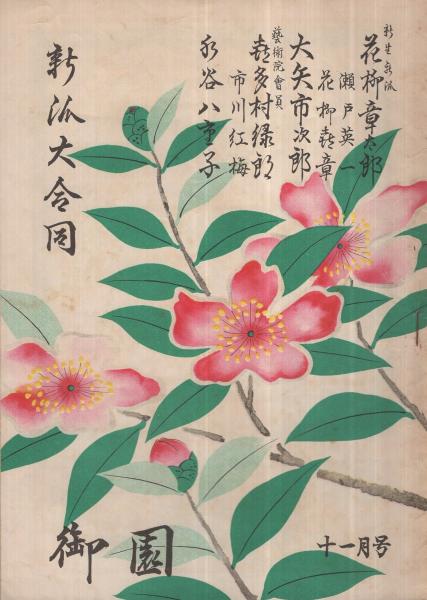 新生新派
花柳章太郎
瀬戸英一
花柳喜章
大矢市次郎
藝術院會員
喜多村緑郎
市川紅梅
水谷八重子
新派大合同
御園
十一月号